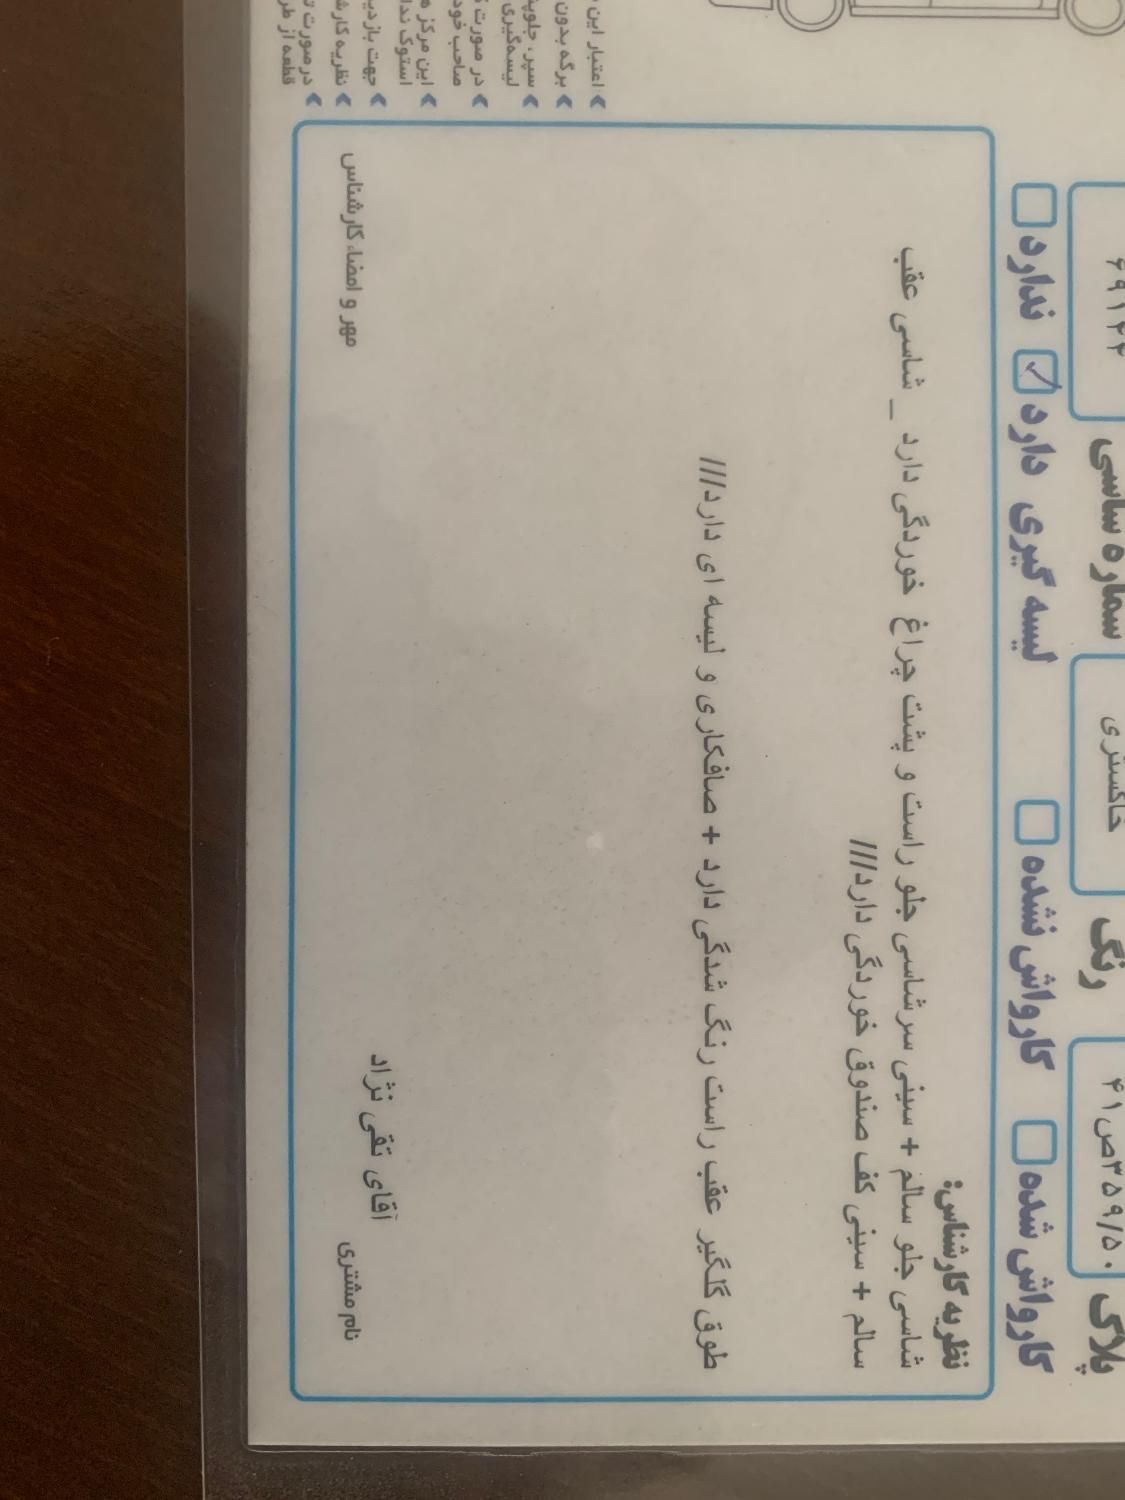 پلاک ۳۵۹/۵۰ص۴۱ رنگ خاکستری شماره شاسی
کارواش شده کارواش نشده لیسه گیری دارد ✓ ندارد
نظریه کارشناس:
شاسی جلو سالم + سینی سرشاسی جلو راست و پشت چراغ خوردگی دارد _ شاسی عقب
سالم + سینی کف صندوق خوردگی دارد///
طوق گلگیر عقب راست رنگ شدگی دارد + صافکاری و لیسه ای دارد///
نام مشتری
آقای تقی نژاد
مهر و امضاء کارشناس
اعتبار این
برگه بدون
سپر، جلوپن
لیسه‌گیری
در صورت
صاحب خود
این مرکز
استوک ندا
جهت بازدی
نظریه کارش
در صورت
قطعه از طر